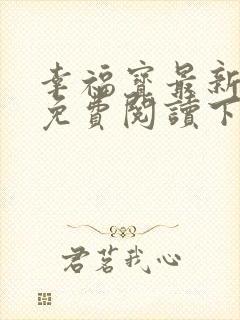 幸福寳最新
免費閱讀下
君茗我心